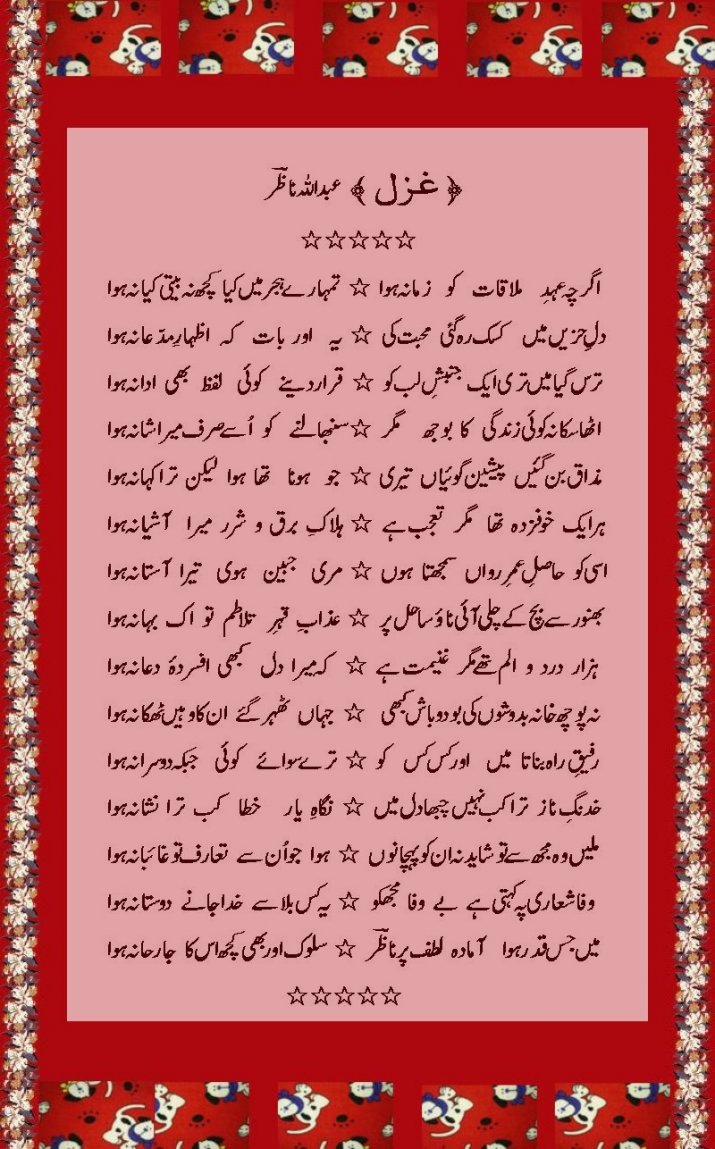 ﴿ غزل ﴾ عبداللہ ناظرؔ
☆☆☆☆☆
اگرچہ عہدِ ملاقات کو زمانہ ہوا ☆ تمہارے ہجر میں کیا کچھ نہ بیتی کیا نہ ہوا
دلِ حزیں میں کسک رہ گئی محبت کی ☆ یہ اور بات کہ اظہارِ مدّعا نہ ہوا
ترس گیا میں تری ایک جنبشِ لب کو ☆ قرار دینے کوئی لفظ بھی ادا نہ ہوا
اٹھا سکا نہ کوئی زندگی کا بوجھ مگر ☆ سنبھالنے کو اُسے صرف میرا شانہ ہوا
مذاق بن گئیں پیشین گوئیاں تیری ☆ جو ہونا تھا ہوا لیکن ترا کہا نہ ہوا
ہر ایک خوفزدہ تھا مگر تعجب ہے ☆ ہلاکِ برق و شرر میرا آشیانہ ہوا
اسی کو حاصلِ عمرِ رواں سمجھتا ہوں ☆ مری جبین ہوی تیرا آستانہ ہوا
بھنور سے بچ کے چلی آئی ناؤ ساحل پر ☆ عذابِ قہرِ تلاطم تو اک بہانہ ہوا
ہزار درد و الم تھے مگر غنیمت ہے ☆ کہ میرا دل کبھی افسردۂ دعا نہ ہوا
نہ پوچھ خانہ بدوشوں کی بود و باش کبھی ☆ جہاں ٹھہر گئے ان کا وہیں ٹھکانہ ہوا
رفیقِ راہ بناتا میں اور کس کس کو ☆ ترے سوائے کوئی جبکہ دوسرا نہ ہوا
خدنگِ ناز ترا کب نہیں چبھا دل میں ☆ نگاہِ یار خطا کب ترا نشانہ ہوا
ملیں وہ مجھ سے تو شاید نہ ان کو پہچانوں ☆ ہوا جو اُن سے تعارف تو غائبانہ ہوا
وفا شعاری پہ کہتی ہے بے وفا مجھکو ☆ یہ کس بلا سے خدا جانے دوستانہ ہوا
میں جس قدر ہوا آمادہ لطف پر ناظرؔ ☆ سلوک اور بھی کچھ اس کا جارحانہ ہوا
☆☆☆☆☆